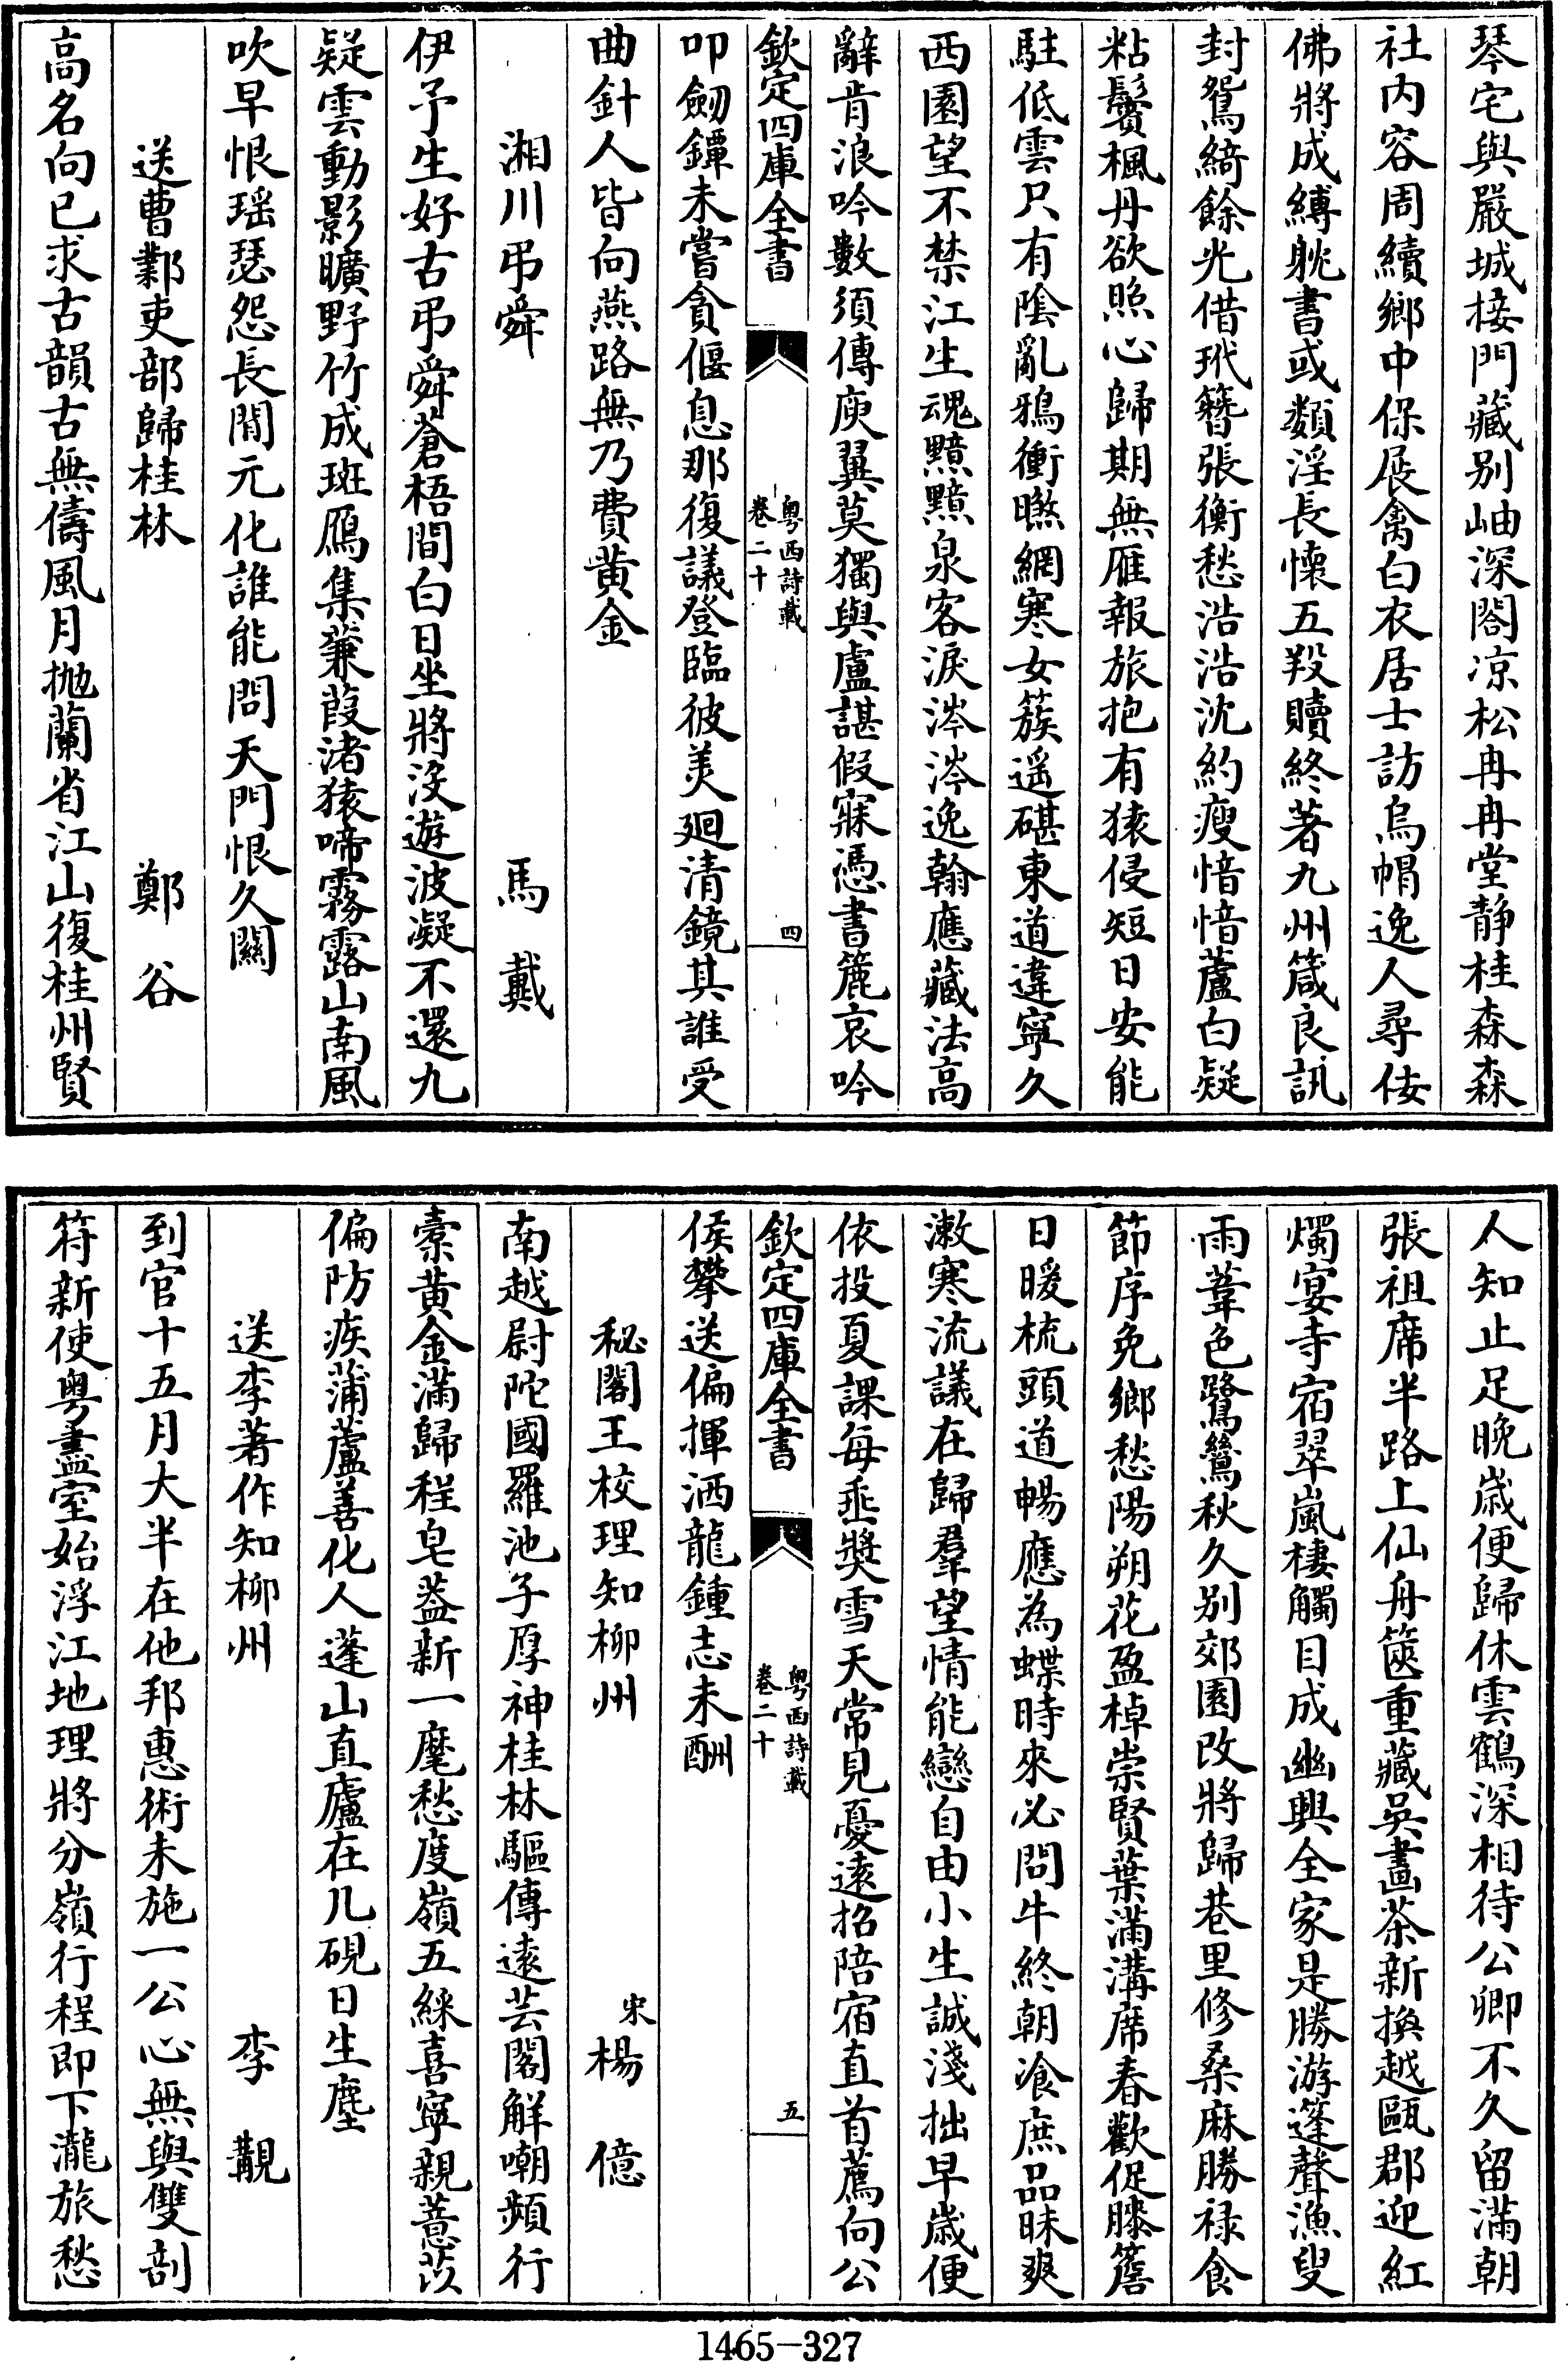 琴宅與嚴城接門藏別岫深閤凉松冉冉堂静桂森森
社内容周續鄉中保展禽白衣居士訪烏帽逸人尋佞
佛將成縛躭書或類淫長懷五羖贖終著九州箴良訊
封鴛綺餘光借玳簪張衡愁浩浩沈約瘦愔愔蘆白疑
粘鬢楓丹欲照心歸期無雁報旅抱有猿侵短日安能
駐低雲只有陰亂鴉衝㬠網寒女簇遥碪東道違寧久
西園望不禁江生魂黯黯泉客淚涔涔逸翰應藏法高
辭肯浪吟數須傳庾翼莫獨與盧諶假寐憑書簏哀吟
欽定四庫全書
粵西詩載
卷二十
四
叩劒鐔未嘗貪偃息那復議登臨彼美廻清鏡其誰受
曲針人皆向燕路無乃費黄金
湘川弔舜 馬戴
伊予生好古弔舜蒼梧間白日坐將没遊波凝不還九
疑雲動影曠野竹成斑鴈集蒹葭渚猿啼霧露山南風
吹早恨瑶瑟怨長閒元化誰能問天門恨久關
送曹鄴吏部歸桂林 鄭谷
高名向已求古韻古無儔風月抛蘭省江山復桂州賢
人知止足晚歲便歸休雲鶴深相待公卿不久留滿朝
張祖席半路上仙舟篋重藏吳畫茶新換越甌郡迎紅
燭宴寺宿翠嵐樓觸目成幽興全家是勝游篷聲漁叟
雨葦色鷺鷥秋久別郊園改將歸巷里修桑麻勝禄食
節序免鄉愁陽朔花盈棹崇賢葉滿溝席春歡促膝簷
日暖梳頭道暢應為蝶時來必問牛終朝飡庶品昧爽
漱寒流議在歸羣望情能戀自由小生誠淺拙早歲便
依投夏課每垂奬雪天常見憂遠招陪宿直首薦向公
欽定四庫全書
粵西詩載
卷二十
五
侯攀送偏揮洒龍鍾志未酬
秘閣王校理知柳州 宋楊億
南越尉陀國羅池子厚神桂林驅傳遠芸閣解嘲頻行
橐黄金滿歸程皂葢新一麾愁度嶺五綵喜寧親薏苡
偏防疾蒲蘆善化人蓬山直廬在几硯日生塵
送李著作知柳州 李覯
到官十五月大半在他邦惠術未施一公心無與雙剖
符新使粵盡室始浮江地理將分嶺行程即下瀧旅愁
1465-327